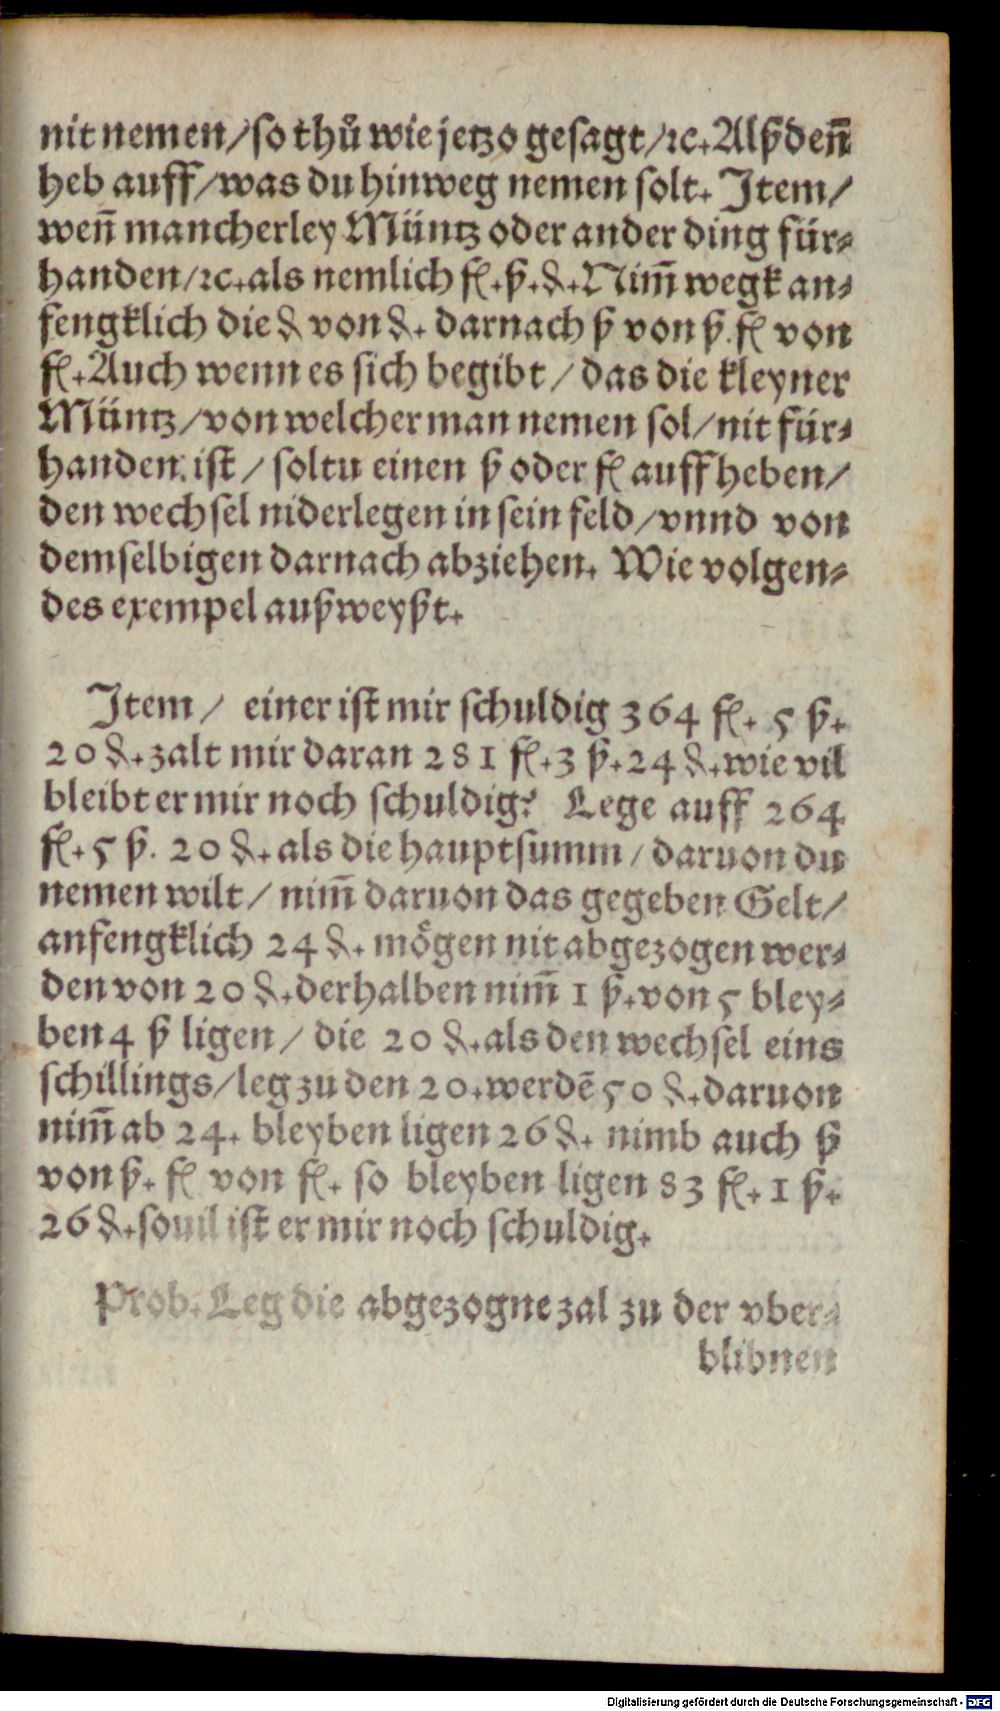 nit nemen/so thů wie jetzo gesagt/ꝛc.Alßden̄
heb auff/was du hinweg nemen solt. Item/
wen̄ mancherley Müntz oder ander ding für⸗
handen/ꝛc.als nemlich fl.ß.₰.Nim̄ wegk an⸗
fengklich die ₰ von ₰. darnach ß von ß.fl von
fl.Auch wenn es sich begibt/das die kleyner
Müntz/von welcher man nemen sol/nit für⸗
handen ist/soltu einen ß oder fl auffheben/
den wechsel niderlegen in sein feld/vnnd von
demselbigen darnach abziehen. Wie volgen⸗
des exempel außweyßt.
Item/ einer ist mir schuldig 364 fl. 5 ß.
20 ₰.zalt mir daran 281 fl.3 ß.24 ₰.wie vil
bleibt er mir noch schuldig? Lege auff 264
fl.5 ß. 20 ₰.als die hauptsumm/daruon du
nemen wilt/nim̄ daruon das gegeben Gelt/
anfengklich 24 ₰. mögen nit abgezogen wer⸗
den von 20 ₰.derhalben nim̄ 1 ß.von 5 bley⸗
ben 4 ß ligen/die 20 ₰.als den wechsel eins
schillings/leg zu den 20.werdē 50 ₰.daruon
nim̄ ab 24. bleyben ligen 26 ₰. nimb auch ß
von ß. fl von fl. so bleyben ligen 83 fl. 1 ß.
26 ₰.souil ist er mir noch schuldig.
Prob.Leg die abgezogne zal zu der vber⸗
blibnen
Digitalisierung gefördert durch die Deutsche Forschungsgemeinschaft - DFG